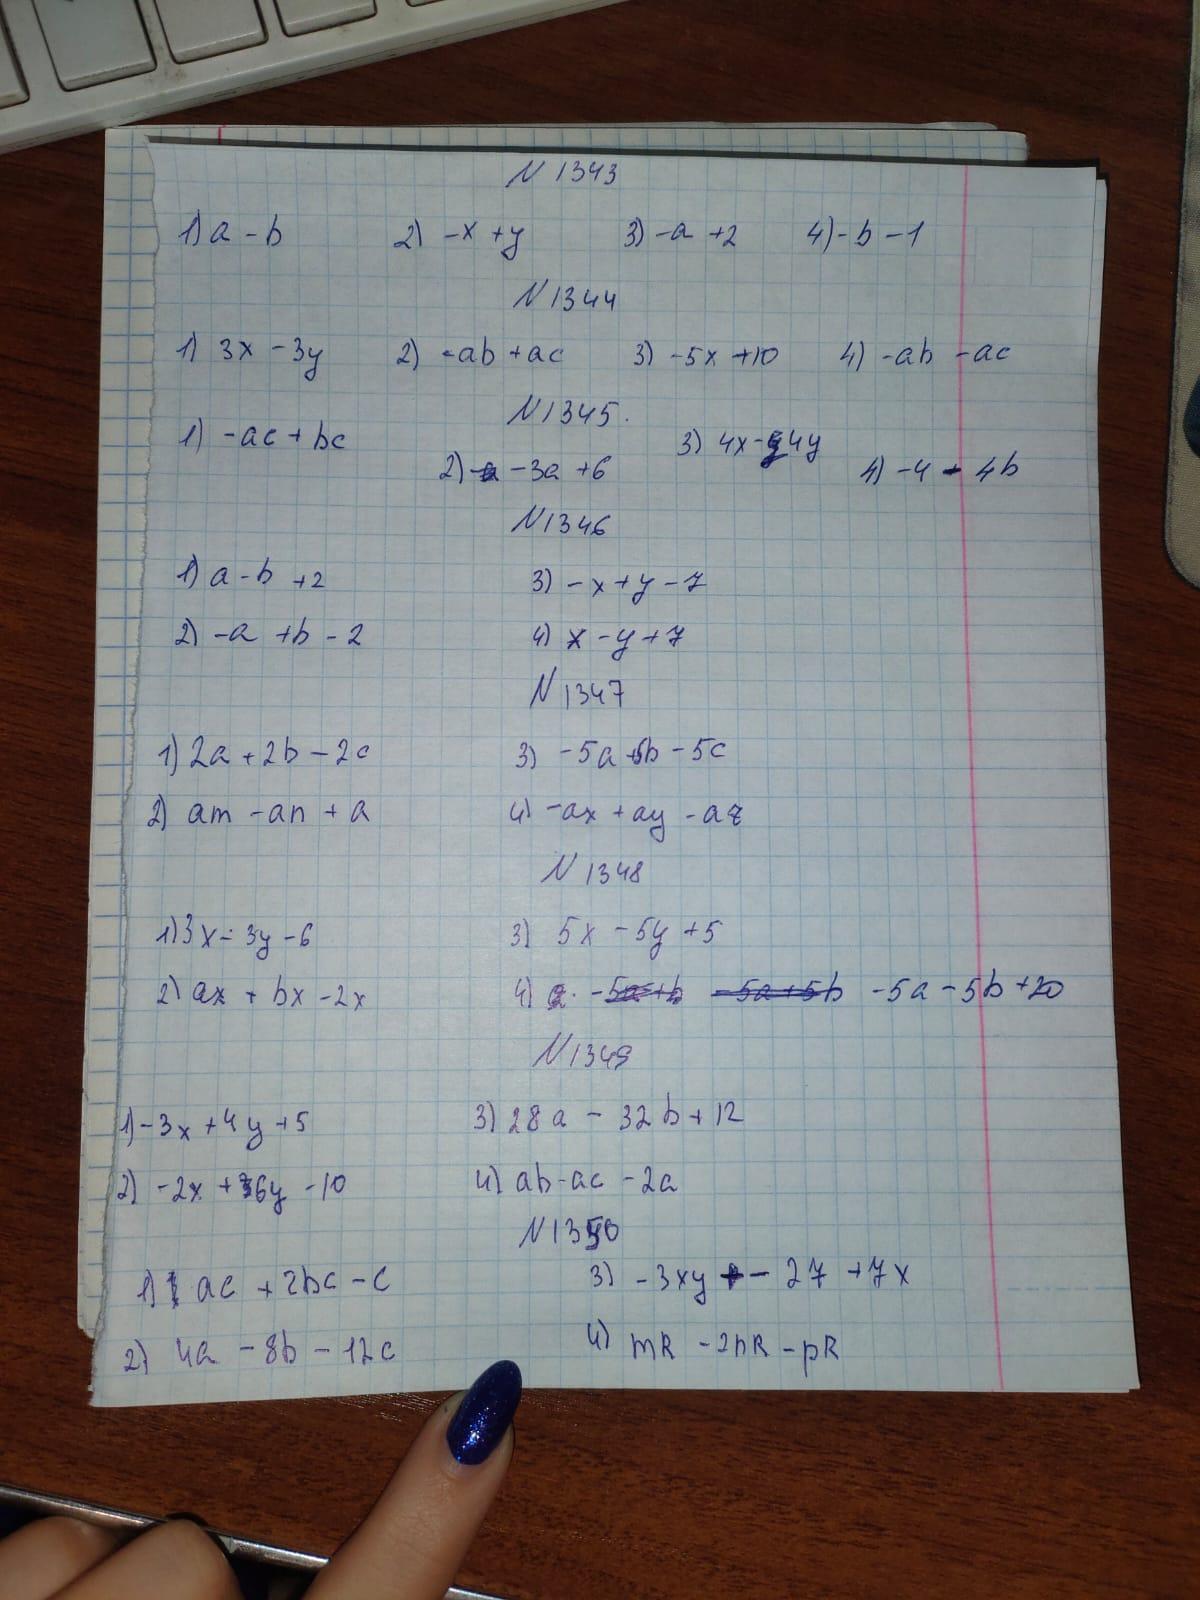 N 1343
1) a - b 2) -x + y 3) -a + 2 4) -b - 1
N 1344
1) 3x - 3y 2) -ab + ac 3) -5x + 10 4) -ab - ac
N 1345.
1) -ac + bc 3) 4x - 4y
2) -3a + 6 4) -4 - 4b
N 1346
1) a - b + 2 3) -x + y - 7
2) -a + b - 2 4) x - y + 7
N 1347
1) 2a + 2b - 2c 3) -5a + 5b - 5c
2) am - an + a 4) -ax + ay - az
N 1348
1) 3x - 3y - 6 3) 5x - 5y + 5
2) ax + bx - 2x 4) -5a + b -5a + 5b -5a - 5b + 20
N 1349
1) -3x + 4y + 5 3) 28a - 32b + 12
2) -2x + 6y - 10 4) ab - ac - 2a
N 1350
1) ac + 2bc - c 3) -3xy - 27 + 7x
2) 4a - 8b - 12c 4) mR - 2nR - pR